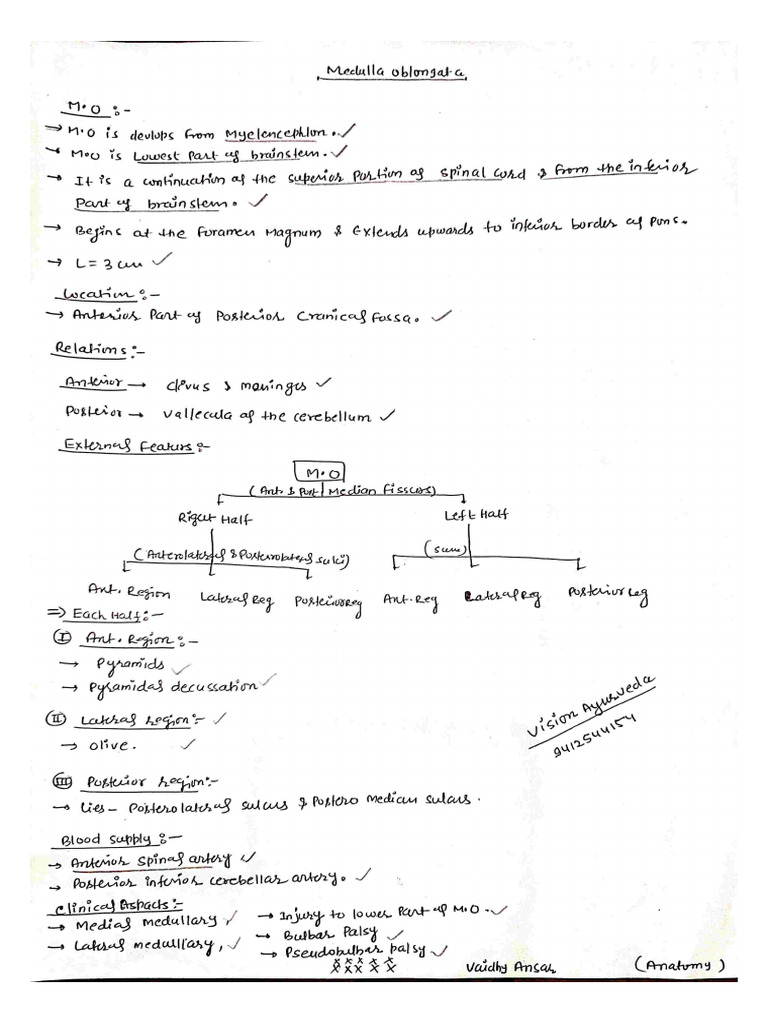 Medulla oblongata
M.O :-
→ M.O is devlops from Myelencephlon. ✓
→ M.O is Lowest Part of brainstem. ✓
→ It is a continuation of the superior Portion of spinal cord & from the inferior
Part of brainstem. ✓
→ Begins at the Foramen Magnum & Extends upwards to inferior border of Pons.
→ L = 3 cm ✓
Location :-
→ Anterior Part of Posterior Cranical Fossa. ✓
Relations :-
Anterior → Clivus & meninges ✓
Posterior → Vallecula of the cerebellum ✓
External Featurs :-
M.O
(Ant. & Post Median fissurs)
Right Half Left Half
(Anterolateral & Posterolateral sulci) (same)
Ant. Region Lateral Reg Posterior reg Ant. Reg Lateral Reg Posterior Leg
⇒ Each Half :-
(I) Ant. Region :-
→ Pyramids ✓
→ Pyramidal decussation ✓
(II) Lateral region :- ✓
→ olive. ✓
Vision Ayurveda
9412544154
(III) Posterior region :-
→ Lies - Posterolateral sulcus & Postero Median sulcus.
Blood supply :-
→ Anterior spinal artery ✓
→ Posterior inferior cerebellar artery. ✓
Clinical Aspacts :-
→ Medial medullary, ✓ → Injury to lower Part of M.O. ✓
→ Lateral medullary, ✓ → Bulbar Palsy ✓
→ Pseudobulbar palsy ✓
Vaidhy Ansar (Anatomy)